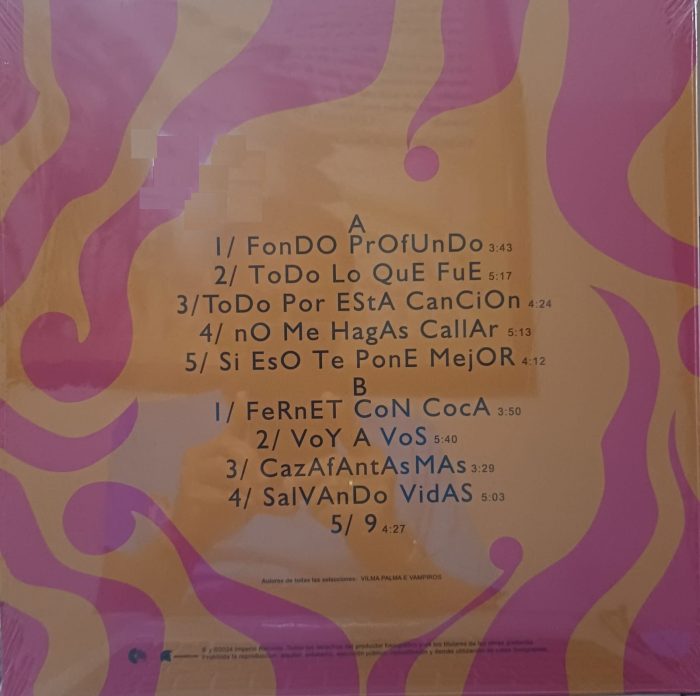 A
1/ FonDO PrOfUnDo 3:43
2/ ToDo Lo QuE FuE 5:17
3/ToDo Por EStA CanCiOn 4:24
4/ nO Me HagAs CallAr 5:13
5/ Si EsO Te PonE MejOR 4:12
B
1/ FeRnET CoN CocA 3:50
2/ VoY A VoS 5:40
3/ CazAfAntAsMAs 3:29
4/ SalVAnDo VidAS 5:03
5/ 9 4:27
Autores de todas las selecciones: VILMA PALMA E VAMPIROS
℗ y ©2024 Imperio Records. Todos los derechos del productor fonográfico y de los titulares de las obras
Prohibida la reproducción, alquiler, préstamo, ejecución pública, y demás utilización de estos fonogramas.